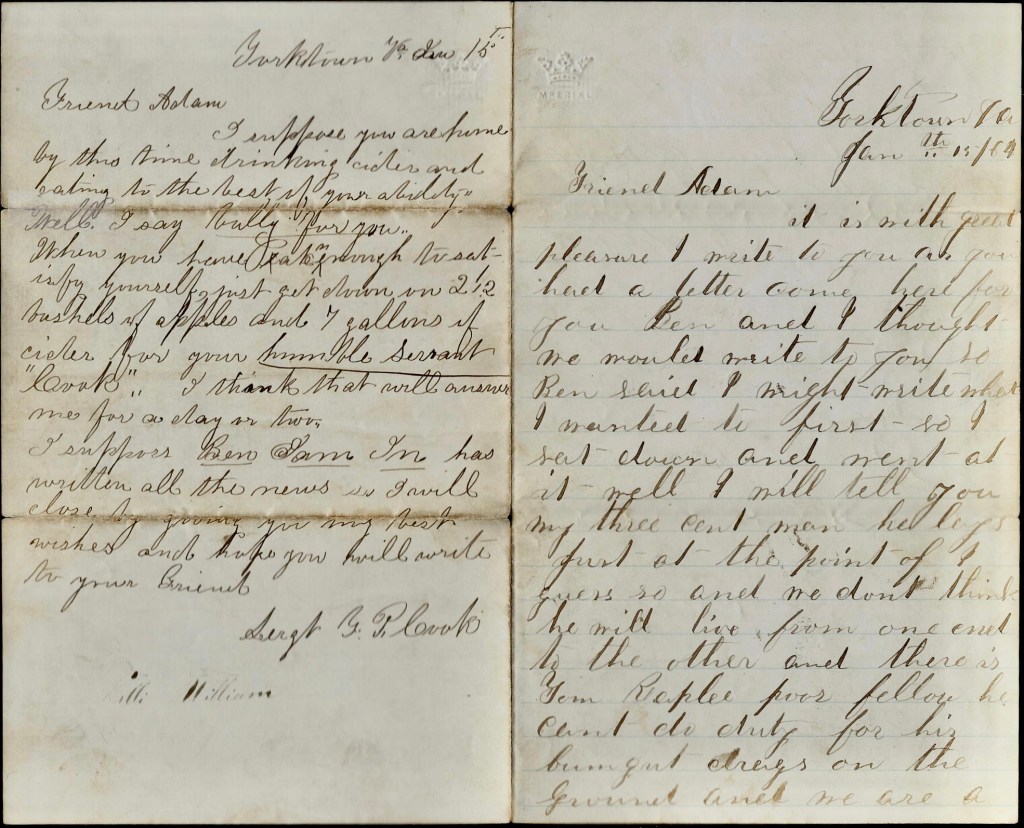 Yorktown Va Jan 15th
Friend Adam
I suppose you are home
by this time drinking cider and
eating to the best of your ability.
Well. I say bully for you..
When you have Eaten enough to sat-
isfy yourself, just get down on 2 1/2
bushels of apples and 7 gallons of
cider for your humble servant
"Cook".. I think that will answer
me for a day or two.
I suppose Ben Sam In has
written all the news so I will
close by giving you my best
wishes and hope you will write
to your Friend
Sergt G. P. Cook
William
IMPERIAL
Yorktown Va
Jan 15th/64
Friend Adam
it is with great
pleasure I write to you as you
had a letter come here for
you Ben and I thought
we would write to you so
Ben said I might write what
I wanted to first so I
sat down and went at
it well I will tell you
my three cent man he lays
just at the point of I
guess so and we dont think
he will live from one end
to the other and there is
Tom Raplee poor fellow he
cant do duty for his
bumgut drags on the
Ground and we are a